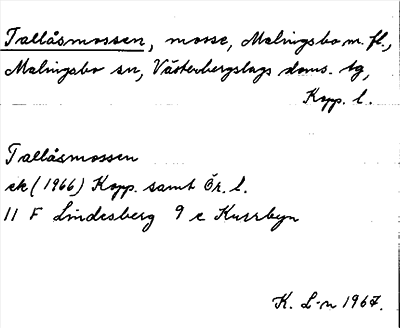 Tallåsmossen, mosse, Malingsbo m. fl.,
Malingsbo sn, Västerbergslags doms. tg,
Kopp. l.
Tallåsmossen
ek (1966) Kopp. samt Ör. l.
11 F Lindesberg 9 c Kurrbyn
K. L-n 1967.